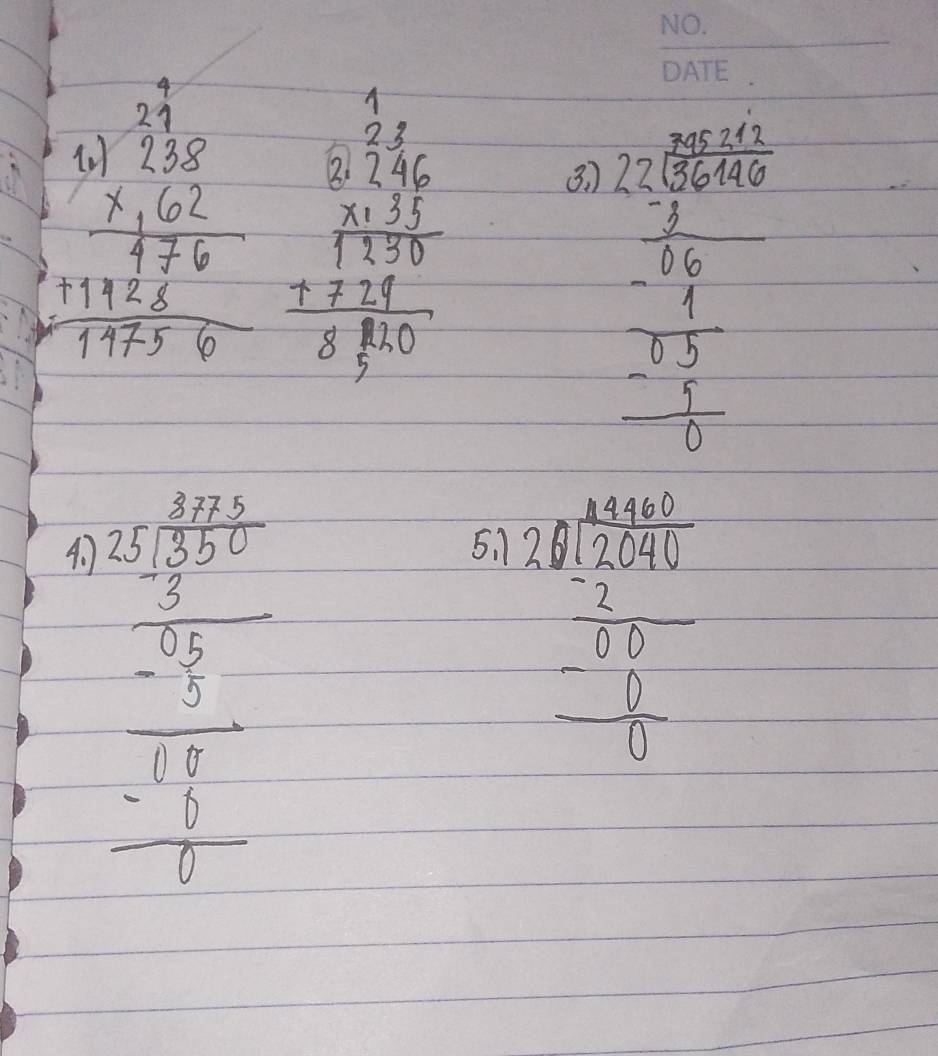 NO.
DATE
4
21
1.) 238
x 62
476
+1428
14756
1
23
2. 246
x 35
1230
+ 729
8520
395212
3.) 22 36146
-3
06
- 1
05
- 5
0
3775
4.) 25 350
-3
05
- 5
00
- 0
0
14460
5.) 20 2040
-2
00
- 0
0